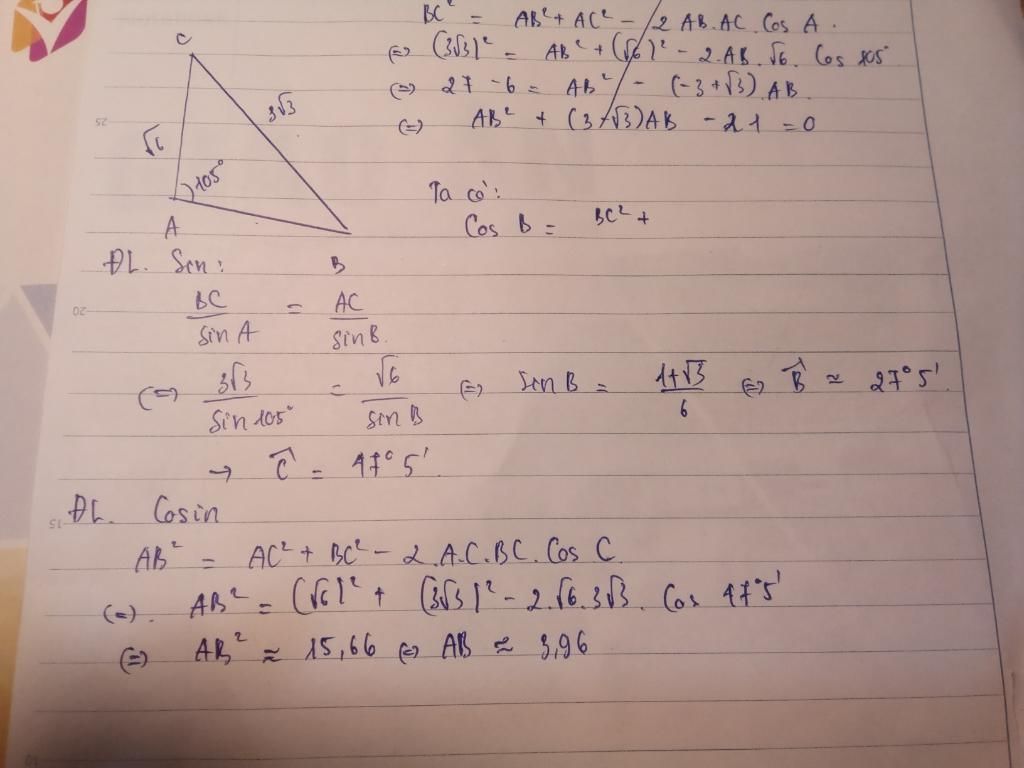 BC² = AB² + AC² - 2 AB.AC. Cos A.
(=) (3√3)² = AB² + (√6)² - 2.AB.√6. Cos 105°
(=) 27 - 6 = AB² - (-3+√3).AB.
(=) AB² + (3-√3)AB - 21 = 0
C
3√3
√6
105°
A
B
Ta có:
Cos B = BC² +
ĐL. Sin:
BC / sin A = AC / sin B.
(=) 3√3 / Sin 105° = √6 / sin B (=) Sin B = 1+√3 / 6 (=) B̂ ≃ 27°5'.
→ Ĉ = 47°5'
ĐL. Cosin
AB² = AC² + BC² - 2.A.C.BC. Cos C.
(=). AB² = (√6)² + (3√3)² - 2.√6.3√3. Cos 47°5'
(=) AB² ≈ 15,66 (=) AB ≈ 3,96
25
20
15
10